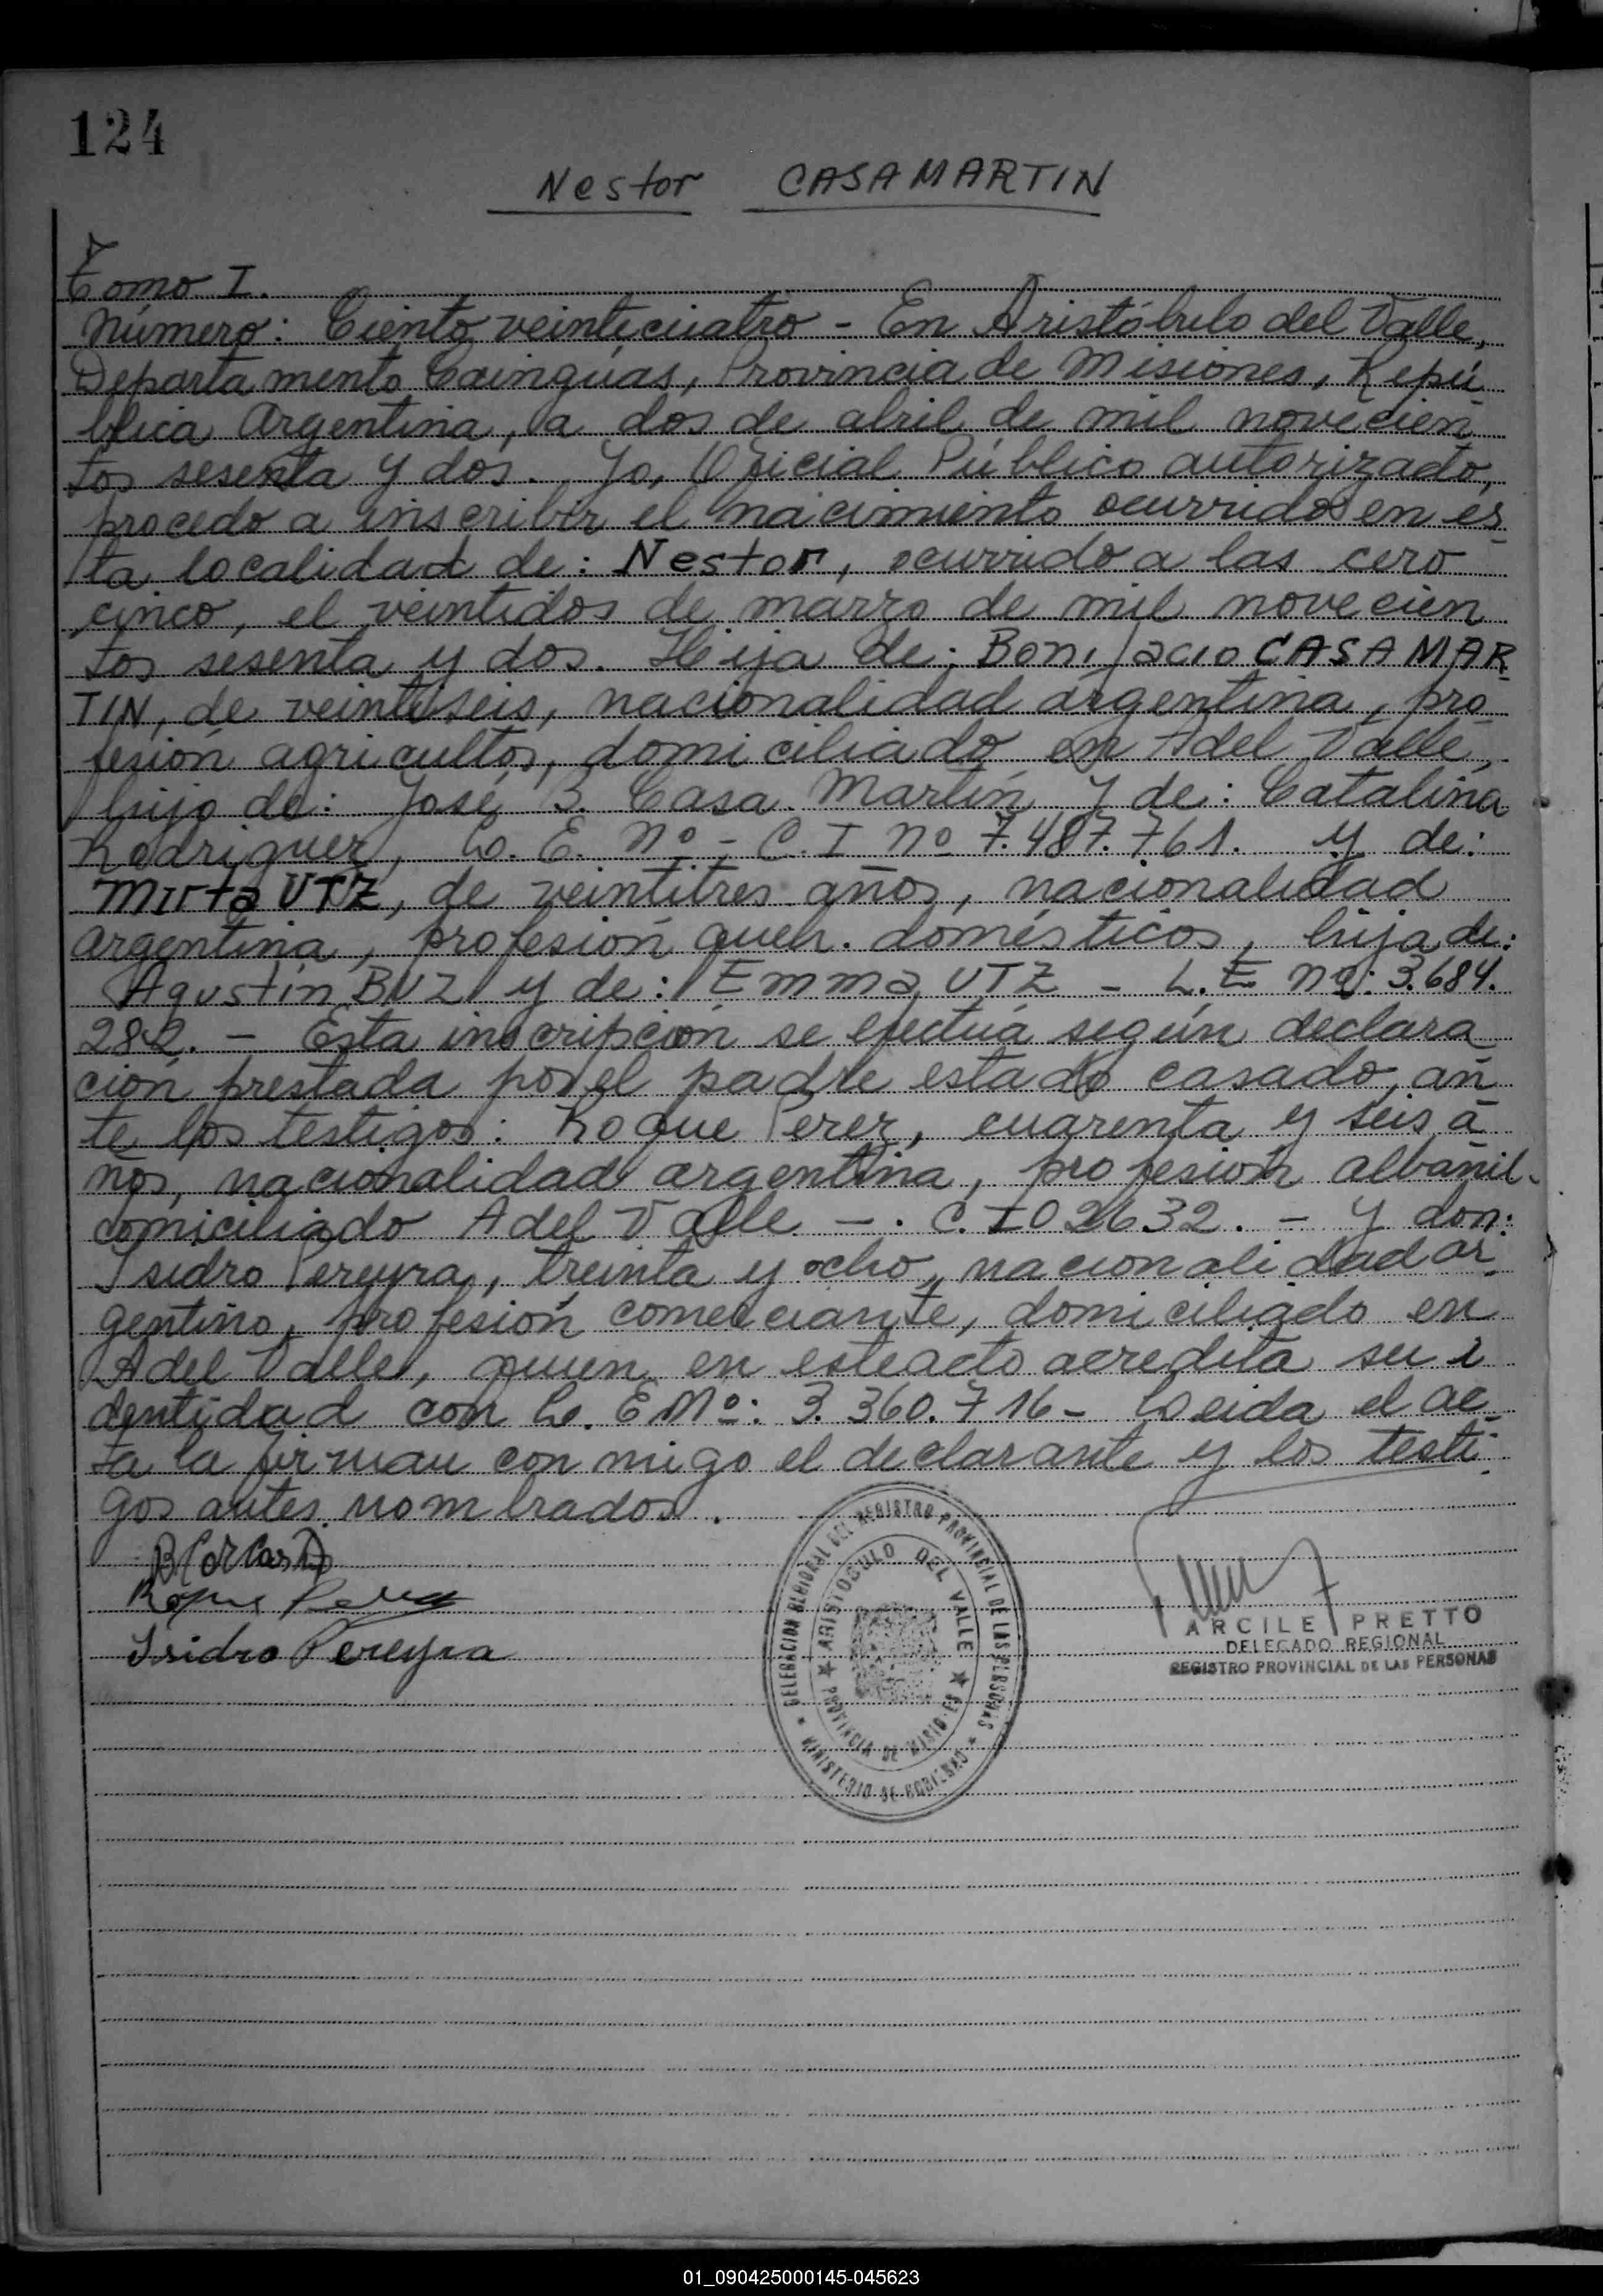 124
Nestor CASAMARTIN
Tomo I.
Número: Ciento veinticuatro - En Aristóbulo del Valle,
Departamento Cainguas, Provincia de Misiones, Repú-
blica Argentina, a dos de abril de mil novecien
tos sesenta y dos. Yo, Oficial Público autorizado,
procedo a inscribir el nacimiento ocurrido en es-
ta localidad de: Nestor, ocurrido a las cero
cinco, el veintidos de marzo de mil novecien
tos sesenta y dos. Hija de: Bonifacio CASAMAR-
TIN, de veintiseis, nacionalidad argentina, pro
fesión agricultor, domiciliado en A del Valle,
hijo de: José B. Casa Martín y de: Catalina
Rodriguez, L. E. Nº - C. I Nº 7.487.761. y de:
Mirta UTZ, de veintitres años, nacionalidad
argentina, profesión queh. domésticos, hija de:
Agustín BNZ y de: Emma UTZ - L. E Nº: 3.684.
282. - Esta inscripción se efectúa según declara
ción prestada por el padre estado casado, an
te los testigos: Roque Perez, cuarenta y seis a
ños, nacionalidad argentina, profesión albañil.
domiciliado A del Valle -. C. I 02632. - y don:
Isidro Pereyra, treinta y ocho, nacionalidad ar
gentino, profesión comerciante, domiciliado en
A del Valle, quien en este acto acredita su i
dentidad con L. E Nº: 3.360.716 - Leida el ac-
ta la firman con migo el declarante y los testi
gos antes nombrados.
Isidro Pereyra
DELEGACION REGIONAL DEL REGISTRO PROVINCIAL DE LAS PERSONAS
ARISTOBULO DEL VALLE
PROVINCIA DE MISIONES
MINISTERIO DE GOBIERNO
ARCILE PRETTO
DELEGADO REGIONAL
REGISTRO PROVINCIAL DE LAS PERSONAS
01_090425000145-045623